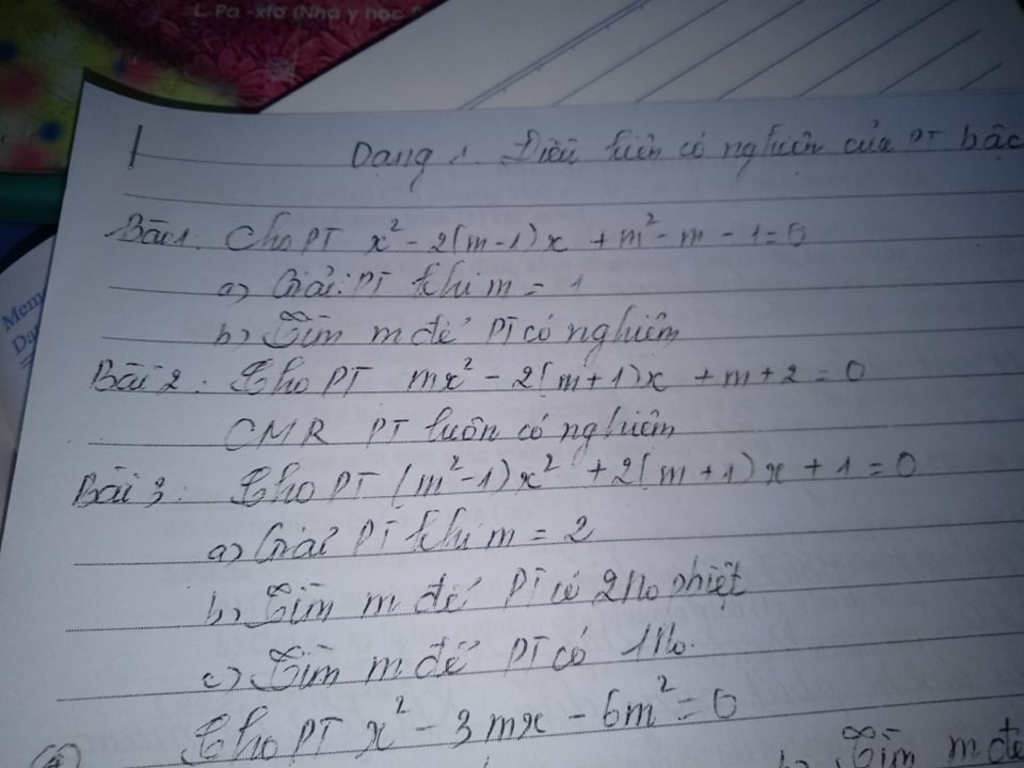 L. Pa-xtơ (Nhà y học
Dạng 1. Điều kiện có nghiệm của PT bậc
Bài 1. Cho PT x² - 2(m-1)x + m² - m - 1 = 0
a) Giải PT khi m = 1
b) Tìm m để PT có nghiệm
Bài 2. Cho PT mx² - 2(m+1)x + m + 2 = 0
CMR PT luôn có nghiệm
Bài 3. Cho PT (m²-1)x² + 2(m+1)x + 1 = 0
a) Giải PT khi m = 2
b) Tìm m để PT có 2 No phiệt
c) Tìm m để PT có 1 No.
Cho PT x² - 3mx - 6m² = 0
b) Tìm m để